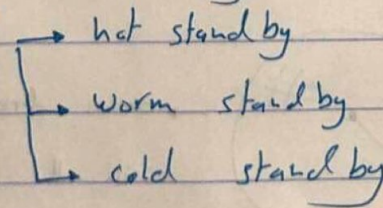 hot stand by
worm stand by.
cold stand by